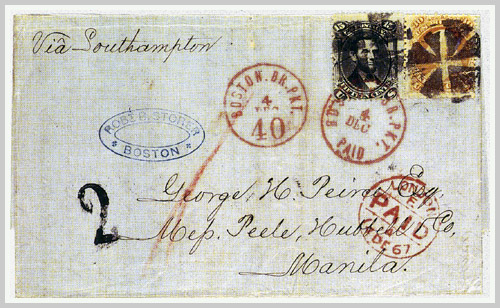 Viâ Southampton
ROBT B. STORER
BOSTON
BOSTON. BR. PKT.
4
DEC
40
BR. PKT.
4
DEC
PAID
2
George H. Peirce, Esq
Mess. Peele, Hubbell & Co,
Manila.
LONDON
PAID
DE 67